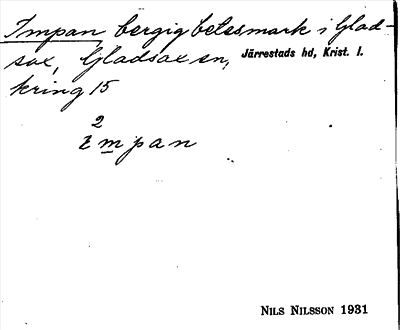 Impan bergig betesmark i Glad-
sax, Gladsax sn, Järrestads hd, Krist. l.
kring 15
2
ɪmpan
NILS NILSSON 1931